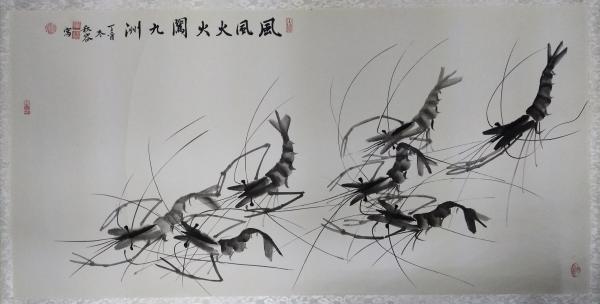 風風火火闖九洲
丁酉
冬
寫